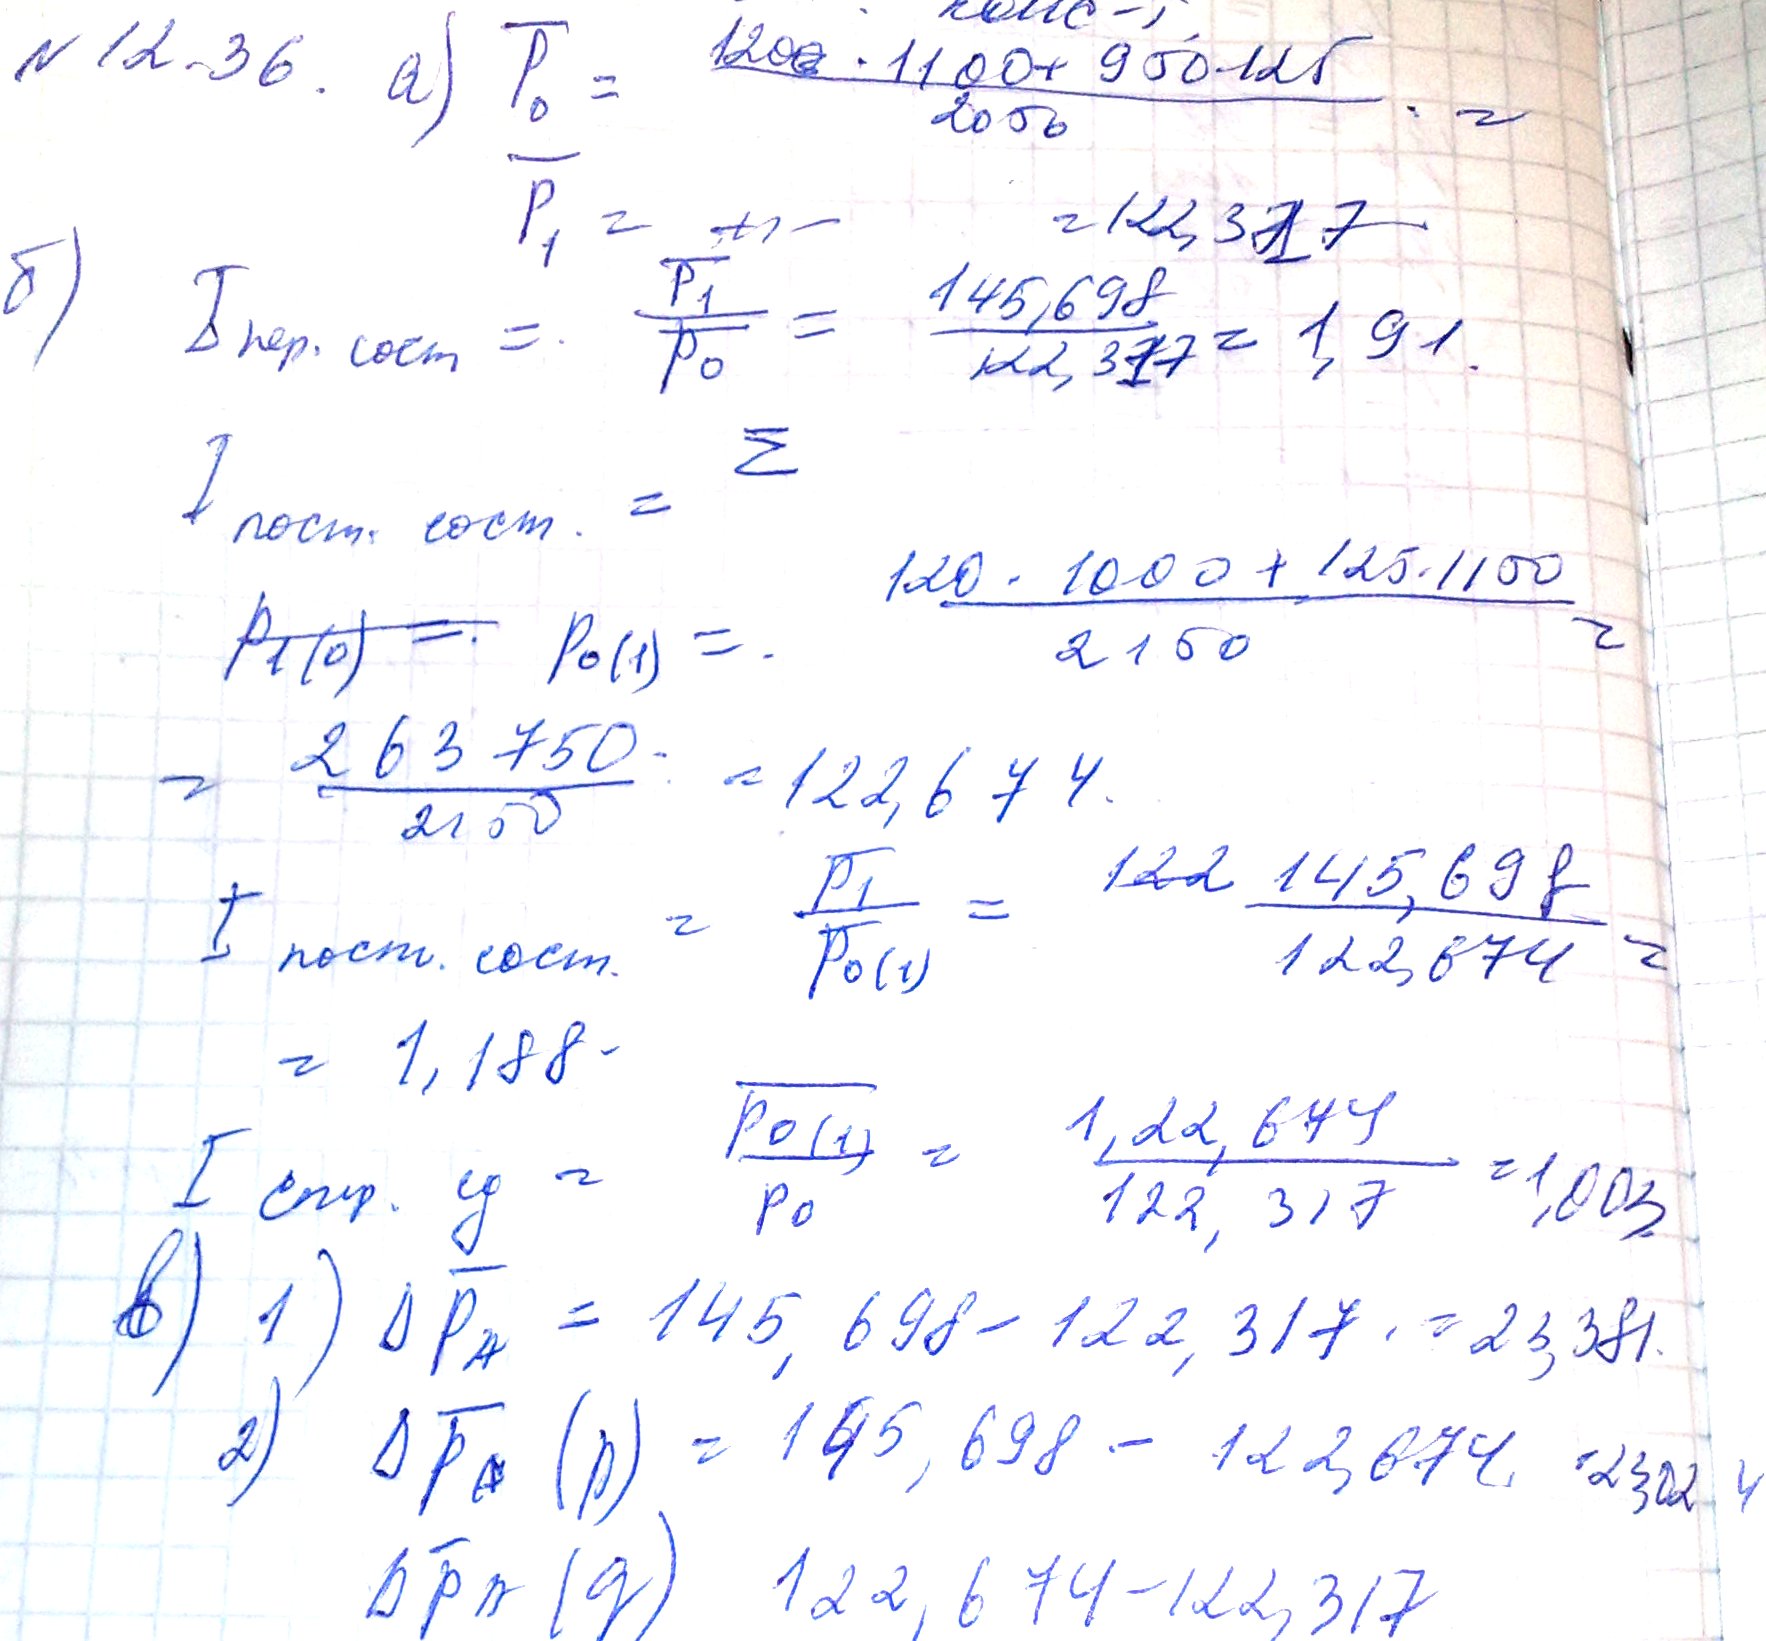 N 12-36. а) P̅₀ = (1200 · 1100 + 950·125) / 2050 · =
P̅₁ = -//- = 122,317
б) I пер. сост = P̅₁ / P̅₀ = 145,698 / 122,317 = 1,91.
I пост. сост. = Σ
P₁(0) = . P₀(1) = . (120 · 1000 + 125·1150) / 2150 =
= 263 750 / 2150 = 122,674.
I пост. сост. = P̅₁ / P̅₀(1) = 122 145,698 / 122,674 =
= 1,188
I стр. сд = P̅₀(1) / P₀ = 1,22,674 / 122,317 = 1,003
в) 1) Δ P̅A = 145,698 - 122,317 . = 23,381.
2) Δ P̅A (p) = 145,698 - 122,674 = 23,024
Δ P̅A (q) 122,674 - 122,317